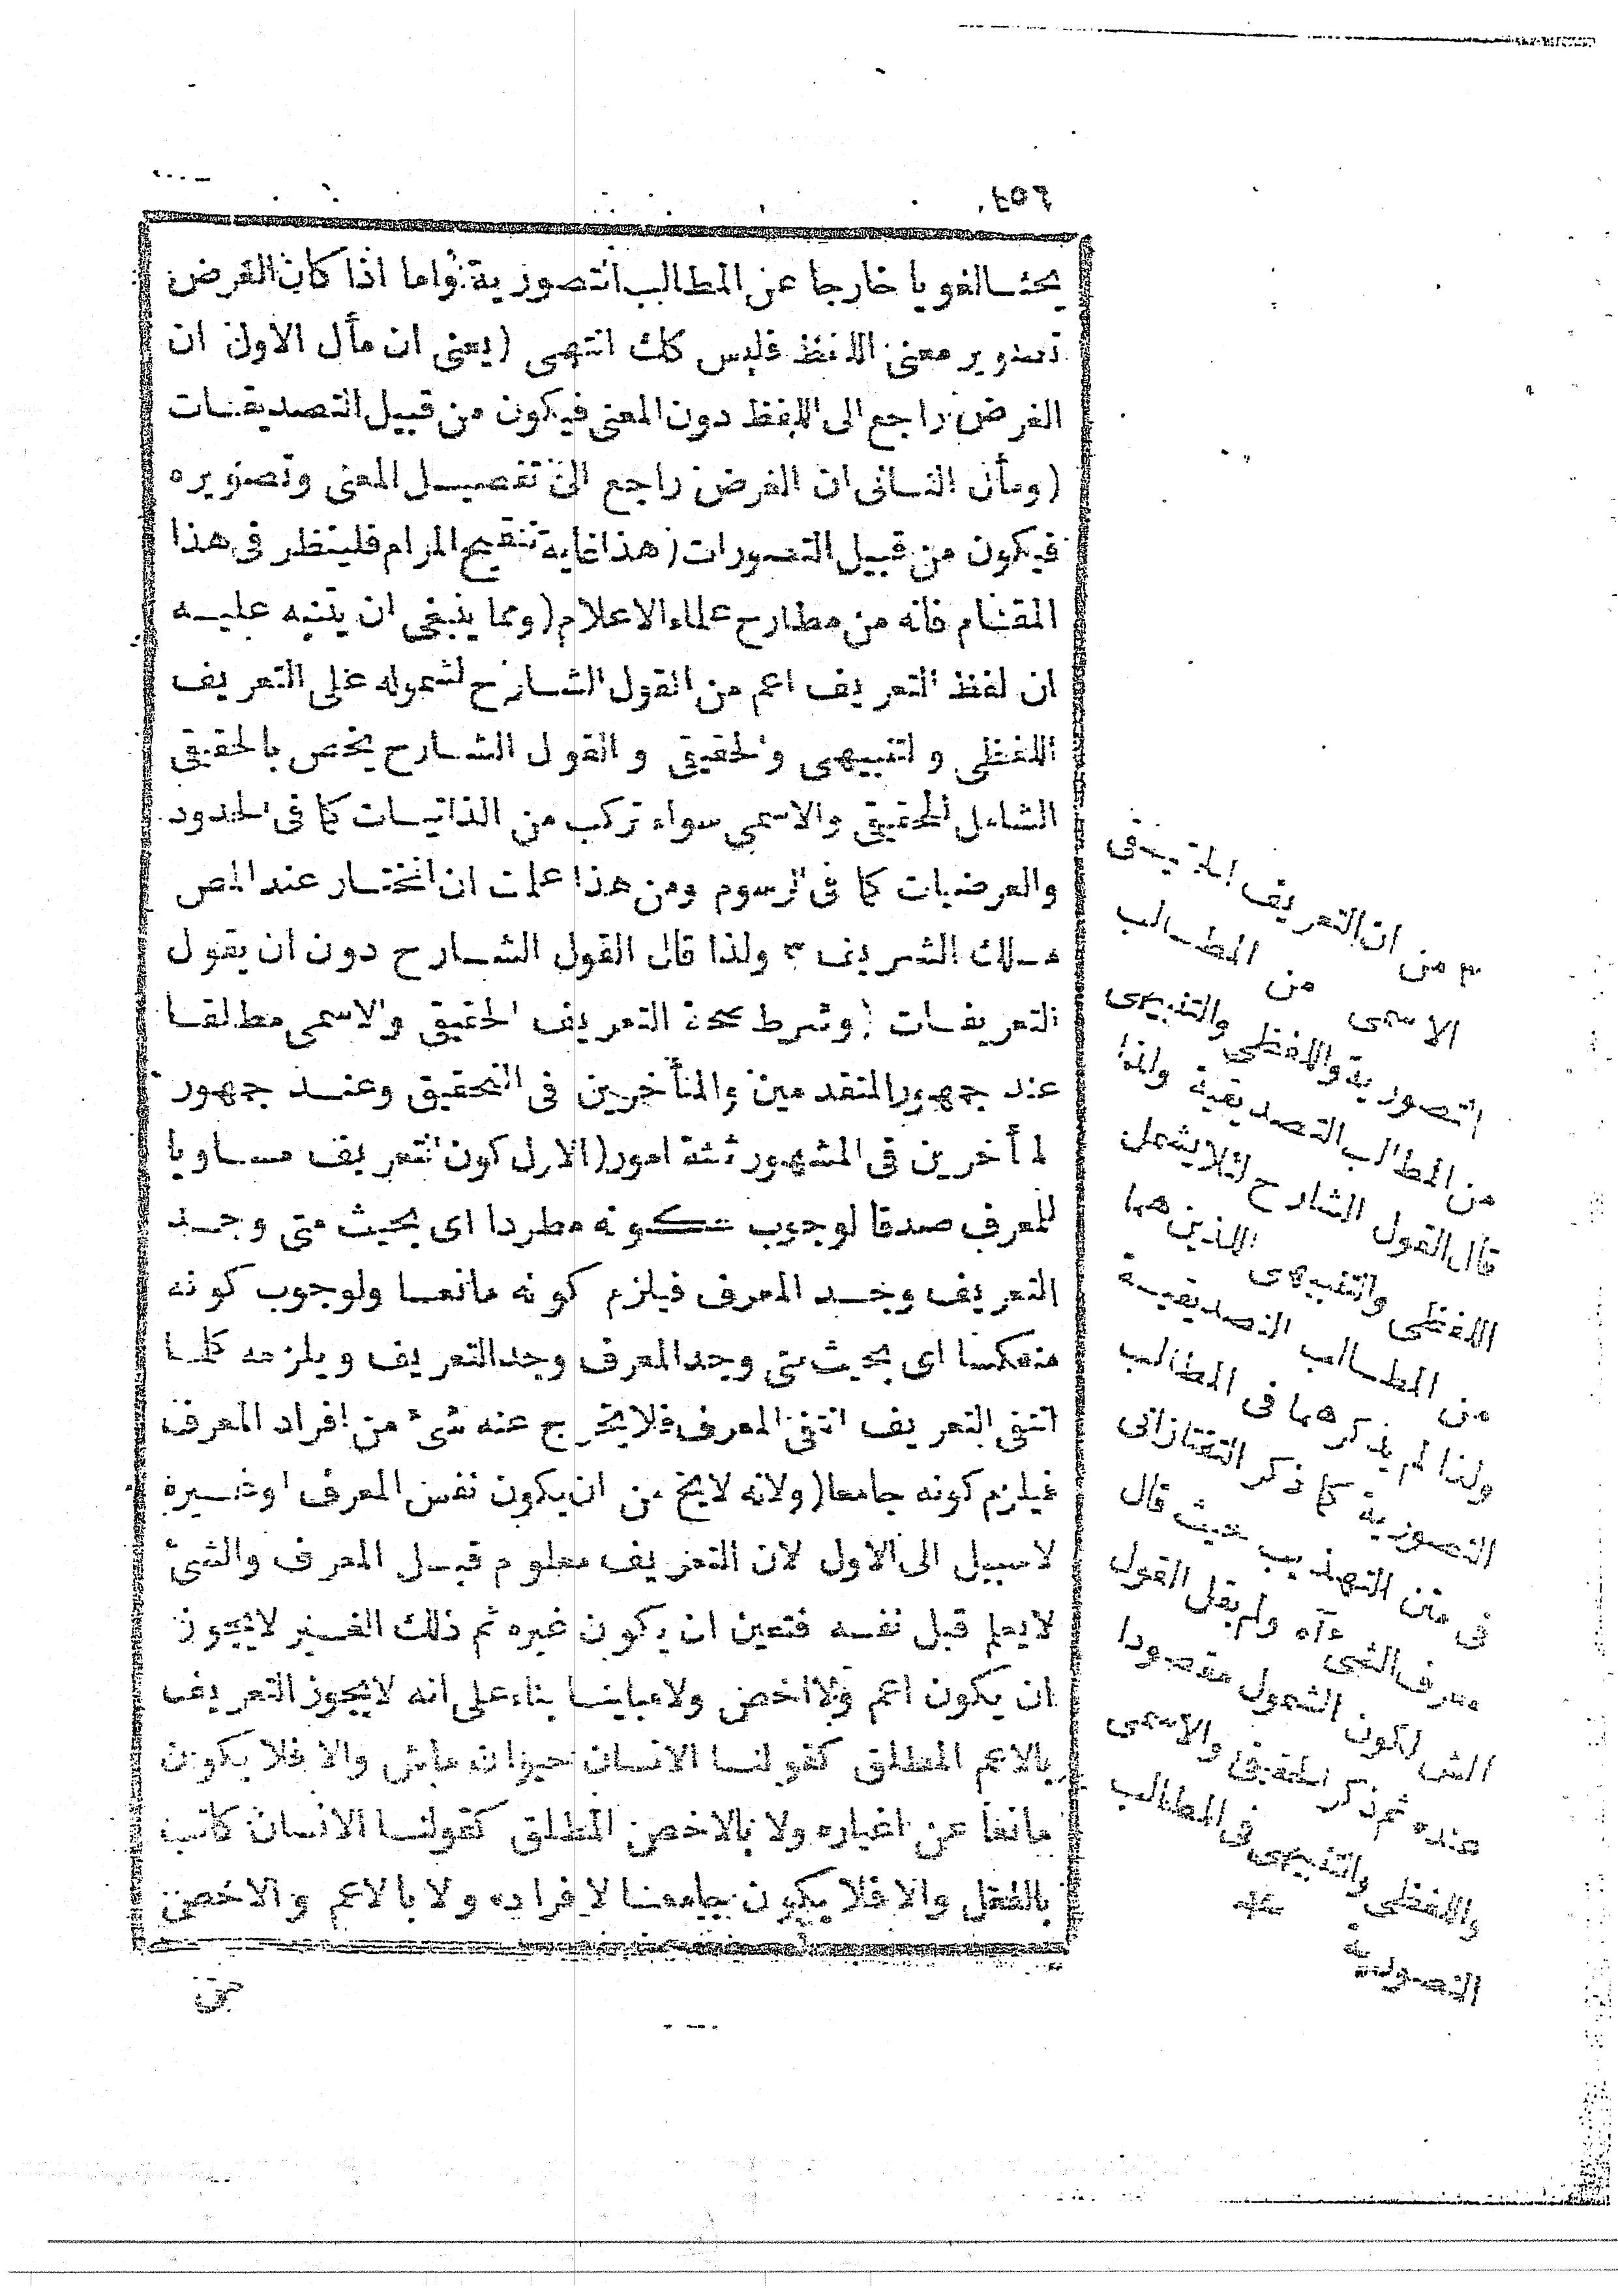 بحثا لغويا خارجا عن المطالب التصورية واما اذا كان الغرض
تصوير معنى اللفظ فليس كك انتهى (يعنى ان مأل الاول ان
الغرض راجع الى اللفظ دون المعنى فيكون من قبيل التصديقات
(ومأل الثانى ان الغرض راجع الى تفصيل المعنى وتصويره
فيكون من قبيل التصورات (هذا غاية تنقيح المرام فلينظر فى هذا
المقام فانه من مطارح علماء الاعلام (ومما ينبغى ان يتنبه عليه
ان لفظ التعريف اعم من القول الشارح لشموله على التعريف
اللفظى و لتنبيهى والحقيقى و القول الشارح يختص بالحقيقى
الشامل الحقيقى والاسمى سواء تركب من الذاتيات كما فى الحدود
والعرضيات كما فى الرسوم ومن هذا علمت ان المختار عند المص
مسلك الشريف ٣ ولذا قال القول الشارح دون ان يقول
التعريفات (وشرط صحة التعريف الحقيقى والاسمى مطلقا
عند جمهور المتقدمين والمتأخرين فى التحقيق وعند جمهور
لمأخرين فى المشهور ثلثة امور (الاول كون التعريف مساويا
للمعرف صدقا لوجوب كونه مطردا اى بحيث متى وجد
التعريف وجد المعرف فيلزم كونه مانعا ولوجوب كونه
منعكسا اى بحيث متى وجد المعرف وجد التعريف ويلزمه كلما
انتفى التعريف انتفى المعرف فلا يخرج عنه شئ من افراد المعرف
فيلزم كونه جامعا (ولانه لا يخ من ان يكون نفس المعرف اوغيره
لاسبيل الى الاول لان التعريف معلوم قبل المعرف والشئ
لايعلم قبل نفسه فتعين ان يكون غيره ثم ذلك الغير لايجوز
ان يكون اعم ولا اخص ولامباينا بناء على انه لايجوز التعريف
بالاعم المطلق كقولنا الانسان حيوان ماش والا فلا يكون
مانعا عن اغياره ولا بالاخص المطلق كقولنا الانسان كاتب
بالفعل والا فلا يكون جامعا لافراده ولا بالاعم والاخص
من
٣ من ان التعريف الحقيقى
الاسمى من المطالب
التصورية واللفظى والتنبيهى
من المطالب التصديقية ولذا
قال القول الشارح لئلا يشمل
اللفظى والتنبيهى اللذين هما
من المطالب التصديقية
ولذا لم يذكرهما فى المطالب
التصورية كما ذكر التفتازانى
فى متن التهذيب حيث قال
معرف الشئ ءاه ولم يقل القول
الش لكون الشمول مقصودا
عنده ثم ذكر الحقيقى والاسمى
واللفظى والتنبيهى فى المطالب
التصورية منه